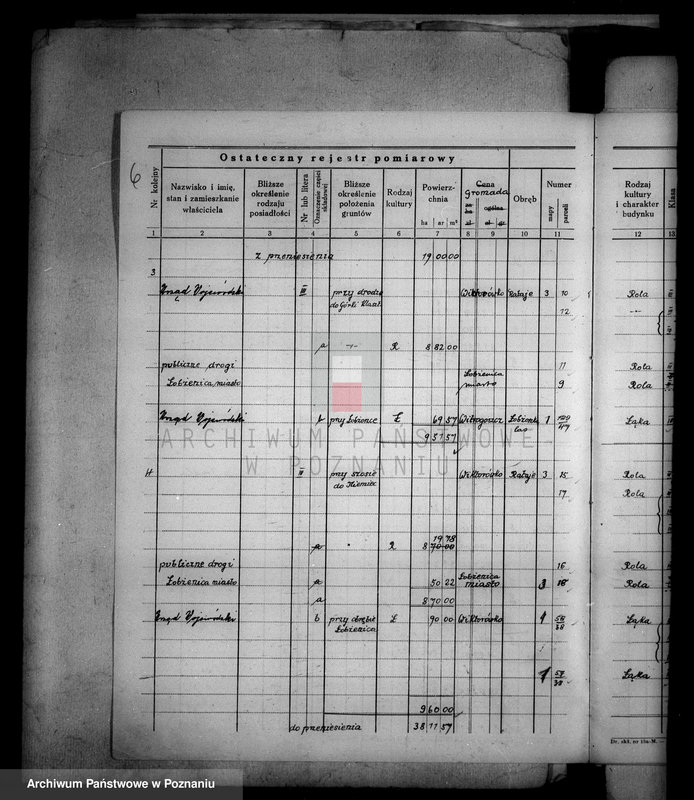 6
Ostateczny rejestr pomiarowy
Nr kolejny
Nazwisko i imię, stan i zamieszkanie właściciela
Bliższe określenie rodzaju posiadłości
Nr lub litera
Oznaczenie części składowej
Bliższe określenie położenia gruntów
Rodzaj kultury
Powierzchnia
ha ar m²
Cena
gromada
Obręb
Numer
mapy
parceli
Rodzaj kultury i charakter budynku
Klasa
1 2 3 4 5 6 7 8 9 10 11 12 13
z przeniesienia 19 00 00
3
Urząd Wojewódzki III przy drodze Wiktorówko Rataje 3 10 Rola
do Górki Klaszt. 12
a R 8 82 00
publiczne drogi 11 Rola
Łobżenica miasto Łobżenica miasto 9 Rola
Urząd Wojewódzki b przy Łobżenic Ł 69 57 1 Łąka
9 51 57
4 II przy szosie Wiktorówko Rataje 3 15 Rola
do 17 Rola
19 78
a R 8 70 00
publiczne drogi 16 Rola
Łobżenica miasto a 50 22 Łobżenica miasto 3 18 Rola
a 8 70 00
Urząd Wojewódzki b przy obrębie Ł 90 00 Wiktorówko 1 Łąka
Łobżenica
1 Łąka
9 60 00
do przeniesienia 38 11 57
Dr. skł. nr 13a-M.
ARCHIWUM PAŃSTWOWE
W POZNANIU
Archiwum Państwowe w Poznaniu